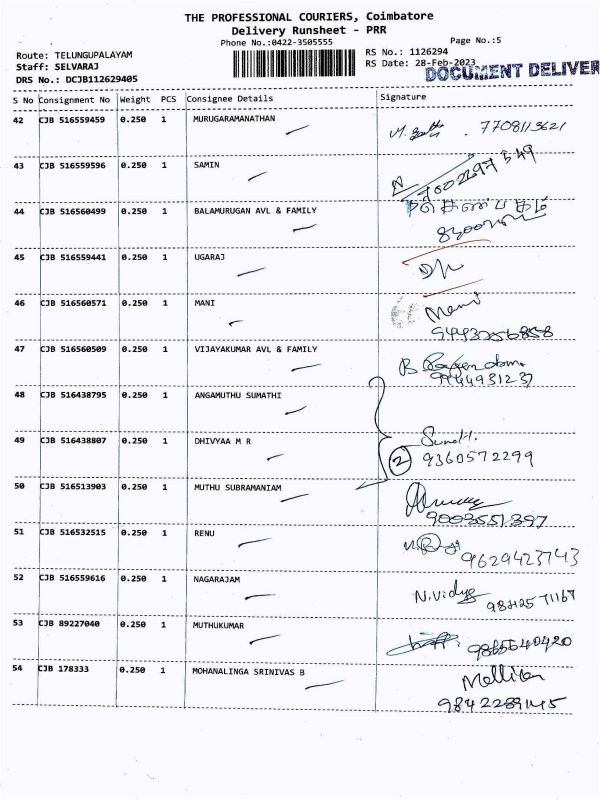 THE PROFESSIONAL COURIERS, Coimbatore
Delivery Runsheet - PRR
Phone No.:0422-3505555
Page No.:5
Route: TELUNGUPALAYAM
RS No.: 1126294
Staff: SELVARAJ
RS Date: 28-Feb-2023
DRS No.: DCJB112629405
DOCUMENT DELIVER
S No Consignment No Weight PCS Consignee Details Signature
42 CJB 516559459 0.250 1 MURUGARAMANATHAN 7708113621
43 CJB 516559596 0.250 1 SAMIN
44 CJB 516560499 0.250 1 BALAMURUGAN AVL & FAMILY
45 CJB 516559441 0.250 1 UGARAJ
46 CJB 516560571 0.250 1 MANI Mani
9443256858
47 CJB 516560509 0.250 1 VIJAYAKUMAR AVL & FAMILY
99444931237
48 CJB 516438795 0.250 1 ANGAMUTHU SUMATHI
49 CJB 516438807 0.250 1 DHIVYAA M R
2 9360572299
50 CJB 516513903 0.250 1 MUTHU SUBRAMANIAM
9003551397
51 CJB 516532515 0.250 1 RENU
9629423743
52 CJB 516559616 0.250 1 NAGARAJAM N.Vidya
53 CJB 89227040 0.250 1 MUTHUKUMAR 9865640420
54 CJB 178333 0.250 1 MOHANALINGA SRINIVAS B